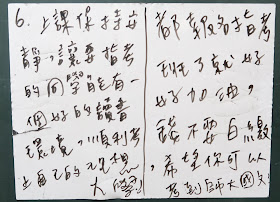 6. 上課保持安
靜,讓要指考
的同學能有一
個好的讀書
環境,順利考
上自己的理想
大學
都報名指考
班了就好
好加油,
錢不要白繳
,希望你可以
考到師大國文